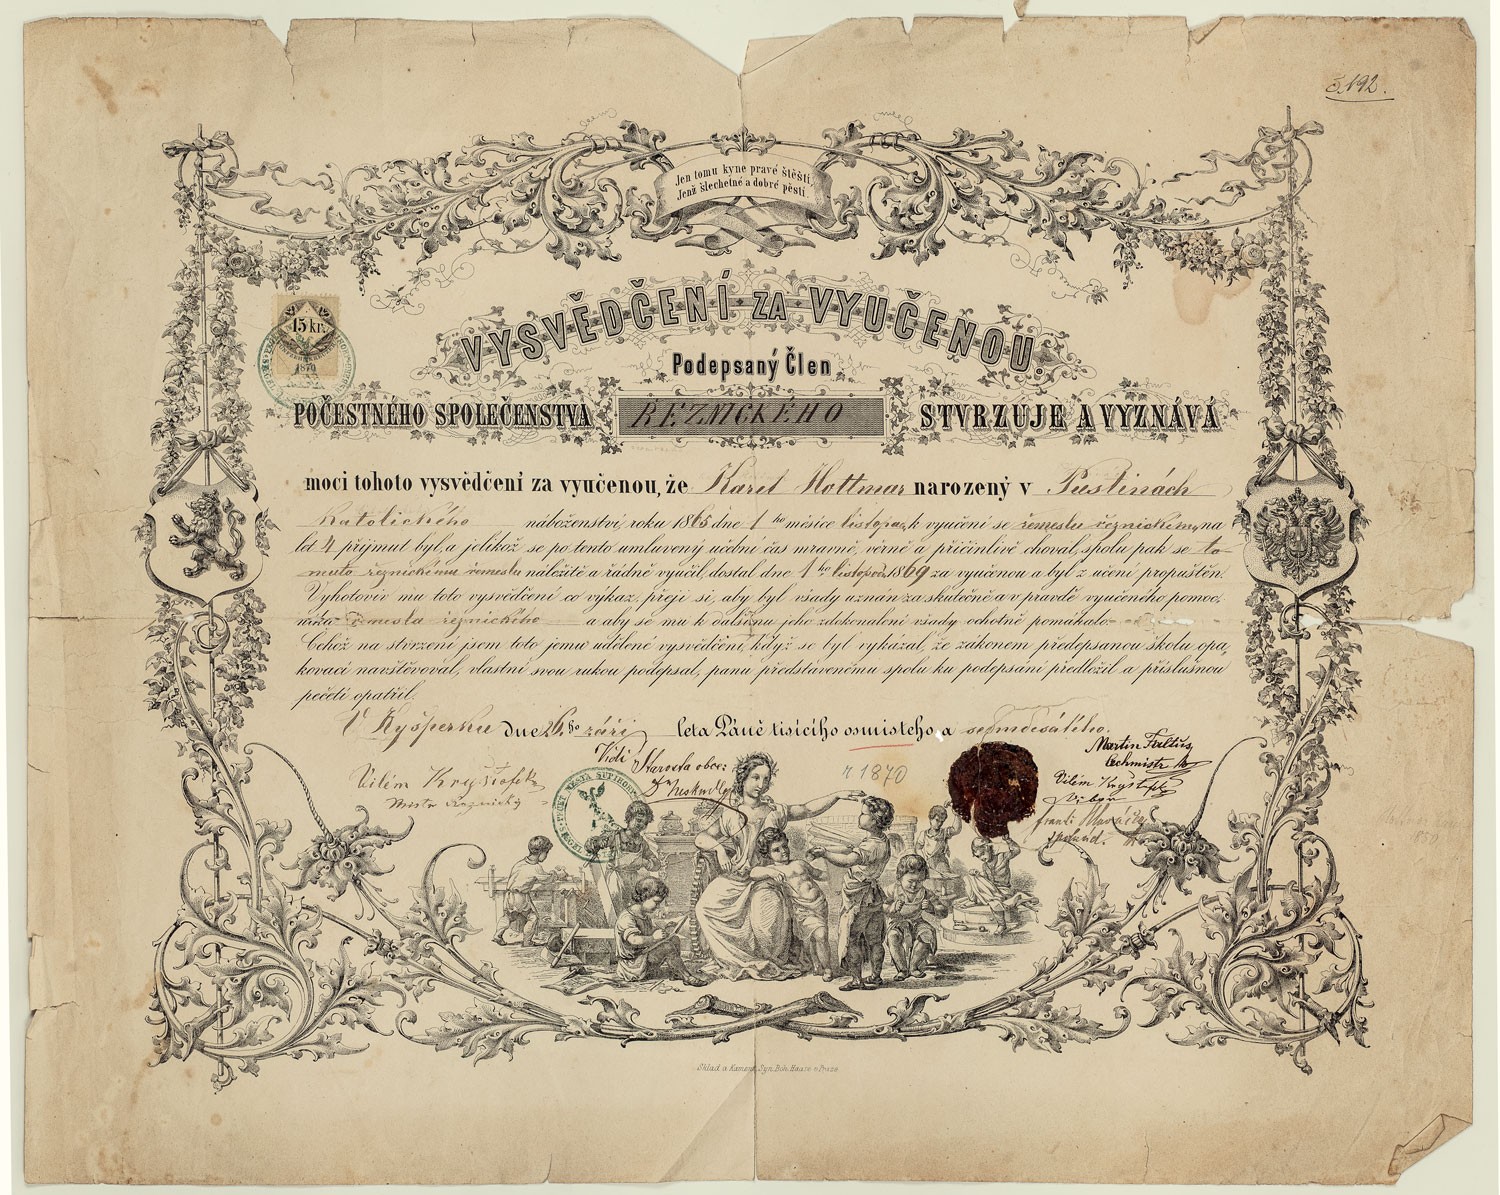 č. 192.
Jen tomu kyne pravé štěstí,
Jenž šlechetné a dobré pěstí
VYSVĚDČENÍ ZA VYUČENOU.
15 kr.
1870
Podepsaný Člen
POČESTNÉHO SPOLEČENSTVA ŘEZNICKÉHO STVRZUJE A VYZNÁVÁ
moci tohoto vysvědčení za vyučenou, že Karel Hottmar narozený v Pustinách
Katolického náboženství, roku 1865 dne 1ho měsíce listopad, k vyučení se řemeslu řeznickému, na
let 4 přijmut byl, a jelikož se po tento umluvený učební čas mravně, věrně a přičinlivě choval, spolu pak se to-
muto řeznickému řemeslu náležitě a řádně vyučil, dostal dne 1ho listopad 1869 za vyučenou a byl z učení propuštěn.
Vyhotoviv mu toto vysvědčení co výkaz, přeji si, aby byl všady uznán za skutečně a v pravdě vyučeného pomoc,
níka řemesla řeznického a aby se mu k dalšímu jeho zdokonalení všady ochotně pomáhalo.
Čehož na stvrzení jsem toto jemu udělené vysvědčení, když se byl vykázal, že zákonem předepsanou školu opa,
kovací navštěvoval, vlastní svou rukou podepsal, panu představenému spolu ku podepsání předložil a příslušnou
pečetí opatřil.
V Kyšperku dne 26.ho září leta Páně tisícího osmistého a sedmdesátého.
Vidi Starosta obce:
r 1870
Martin Faltus
Cechmistr
Vilém Kryštofek
Mistr Řeznický
Vilém Kryštofek
Sklad a Kament. Syn. Boh. Haase v Praze